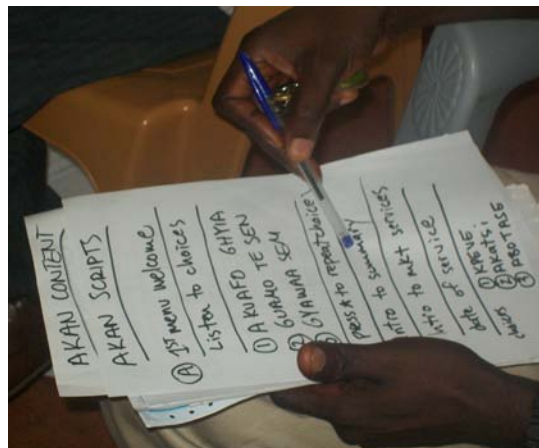 AKAN CONTENT
AKAN SCRIPTS
Ⓐ 1st menu welcome
Listen to choices
AKUAFO GHYIA
① AKUAFO GHYIA
② GUANO TE SEN
③ GYAWAA SEM
press # to repeat choice
intro to summary
intro to mkt services
date of service
① KAGUE
② AKATSI
③ ABOTASE